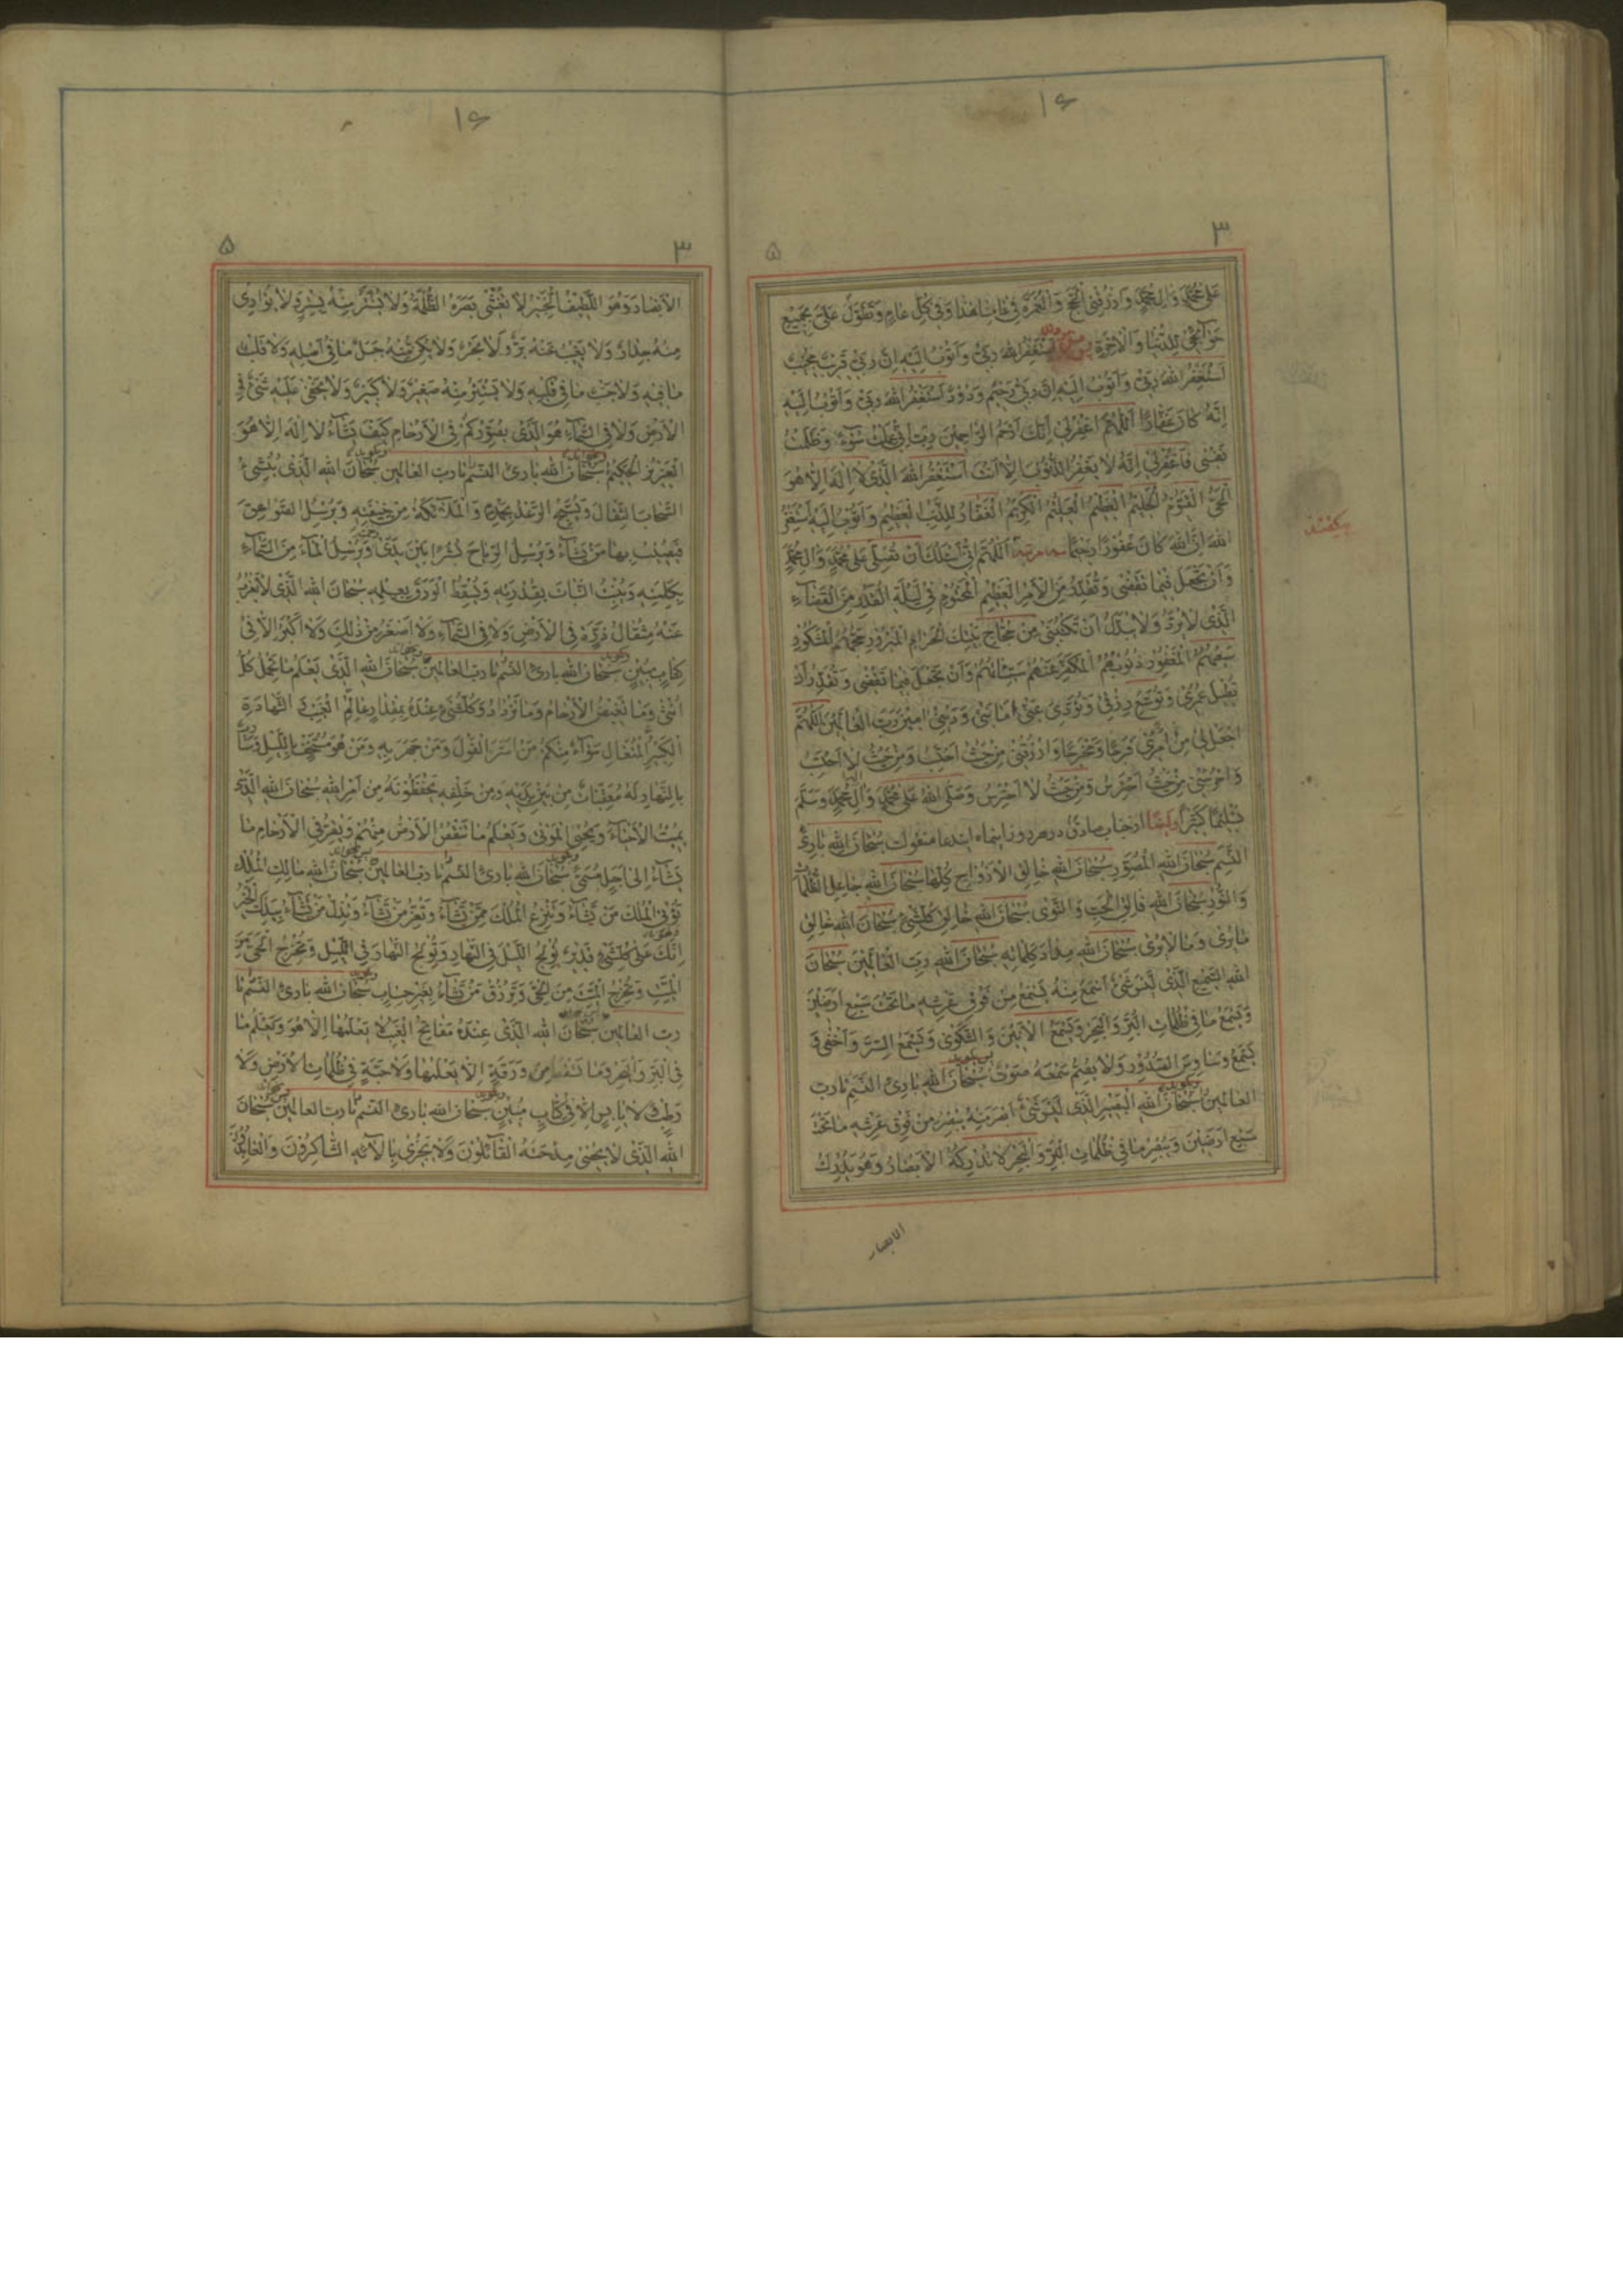 ۱۶
۳
۵
عَلىٰ مُحَمَّدٍ وَآلِ مُحَمَّدٍ وَارْزُقْنِي الْحَجَّ وَالْعُمْرَةَ فِي عَامِنَا هٰذَا وَفِي كُلِّ عَامٍ وَتَطَوَّلْ عَلَيَّ بِجَمِيعِ
حَوَائِجِي لِلدُّنْيَا وَالْآخِرَةِ اَسْتَغْفِرُ اللهَ رَبِّي وَاَتُوبُ اِلَيْهِ اِنَّ رَبِّي قَرِيبٌ مُجِيبٌ
اَسْتَغْفِرُ اللهَ رَبِّي وَاَتُوبُ اِلَيْهِ اِنَّ رَبِّي رَحِيمٌ وَدُودٌ اَسْتَغْفِرُ اللهَ رَبِّي وَاَتُوبُ اِلَيْهِ
اِنَّهُ كَانَ غَفَّارًا اَللّٰهُمَّ اغْفِرْلِي اِنَّكَ اَرْحَمُ الرَّاحِمِينَ رَبِّ اِنِّي عَمِلْتُ سُوءً وَظَلَمْتُ
نَفْسِي فَاغْفِرْلِي اِنَّهُ لَا يَغْفِرُ الذُّنُوبَ اِلَّا اَنْتَ اَسْتَغْفِرُ اللهَ الَّذِي لَا اِلٰهَ اِلَّا هُوَ
الْحَيُّ الْقَيُّومُ الْحَلِيمُ الْعَظِيمُ الْعَلِيمُ الْكَرِيمُ الْغَفَّارُ لِلذَّنْبِ الْعَظِيمِ وَاَتُوبُ اِلَيْهِ اَسْتَغْفِرُ
اللهَ اِنَّ اللهَ كَانَ غَفُورًا رَحِيمًا اَللّٰهُمَّ اِنِّي اَسْئَلُكَ اَنْ تُصَلِّيَ عَلىٰ مُحَمَّدٍ وَآلِ مُحَمَّدٍ
وَاَنْ تَجْعَلَ فِيمَا تَقْضِي وَتُقَدِّرُ مِنَ الْاَمْرِ الْعَظِيمِ الْمَحْتُومِ فِي لَيْلَةِ الْقَدْرِ مِنَ الْقَضَاءِ
الَّذِي لَا يُرَدُّ وَلَا يُبَدَّلُ اَنْ تَكْتُبَنِي مِنْ حُجَّاجِ بَيْتِكَ الْحَرَامِ الْمَبْرُورِ حَجُّهُمُ الْمَشْكُورِ
سَعْيُهُمُ الْمَغْفُورِ ذُنُوبُهُمُ الْمُكَفَّرِ عَنْهُمْ سَيِّئَاتُهُمْ وَاَنْ تَجْعَلَ فِيمَا تَقْضِي وَتُقَدِّرُ اَنْ
تُطِيلَ عُمْرِي وَتُوَسِّعَ رِزْقِي وَتُؤَدِّيَ عَنِّي اَمَانَتِي وَدَيْنِي آمِينَ رَبَّ الْعَالَمِينَ اَللّٰهُمَّ
اجْعَلْ لِي مِنْ اَمْرِي فَرَجًا وَمَخْرَجًا وَارْزُقْنِي مِنْ حَيْثُ اَحْتَسِبُ وَمِنْ حَيْثُ لَا اَحْتَسِبُ
وَاحْرُسْنِي مِنْ حَيْثُ اَحْتَرِسُ وَمِنْ حَيْثُ لَا اَحْتَرِسُ وَصَلَّى اللهُ عَلىٰ مُحَمَّدٍ وَآلِ مُحَمَّدٍ وَسَلَّمَ
تَسْلِيمًا كَثِيرًا وَاَيْضًا از جناب صادق در هر روز اینماه ایندعا منقولست سُبْحَانَ اللهِ بَارِئِ
النَّسَمِ سُبْحَانَ اللهِ الْمُصَوِّرِ سُبْحَانَ اللهِ خَالِقِ الْاَزْوَاجِ كُلِّهَا سُبْحَانَ اللهِ جَاعِلِ الظُّلُمَاتِ
وَالنُّورِ سُبْحَانَ اللهِ فَالِقِ الْحَبِّ وَالنَّوىٰ سُبْحَانَ اللهِ خَالِقِ كُلِّ شَيْءٍ سُبْحَانَ اللهِ خَالِقِ
مَا يُرىٰ وَمَا لَا يُرىٰ سُبْحَانَ اللهِ مِدَادَ كَلِمَاتِهِ سُبْحَانَ اللهِ رَبِّ الْعَالَمِينَ سُبْحَانَ
اللهِ السَّمِيعِ الَّذِي لَيْسَ شَيْءٌ اَسْمَعَ مِنْهُ يَسْمَعُ مِنْ فَوْقِ عَرْشِهِ مَا تَحْتَ سَبْعِ اَرَضِينَ
وَيَسْمَعُ مَا فِي ظُلُمَاتِ الْبَرِّ وَالْبَحْرِ وَيَسْمَعُ الْاَنِينَ وَالشَّكْوىٰ وَيَسْمَعُ السِّرَّ وَاَخْفىٰ وَ
يَسْمَعُ وَسَاوِسَ الصُّدُورِ وَلَا يُصِمُّ سَمْعَهُ صَوْتٌ سُبْحَانَ اللهِ بَارِئِ النَّسَمِ تا رَبِّ
الْعَالَمِينَ سُبْحَانَ اللهِ الْبَصِيرِ الَّذِي لَيْسَ شَيْءٌ اَبْصَرَ مِنْهُ يُبْصِرُ مِنْ فَوْقِ عَرْشِهِ مَا تَحْتَ
سَبْعِ اَرَضِينَ وَيُبْصِرُ مَا فِي ظُلُمَاتِ الْبَرِّ وَالْبَحْرِ لَا تُدْرِكُهُ الْاَبْصَارُ وَهُوَ يُدْرِكُ
الابصار
۱۶
۳
۵
الْاَبْصَارَ وَهُوَ اللَّطِيفُ الْخَبِيرُ لَا تُغْشِي بَصَرَهُ الظُّلْمَةُ وَلَا يُسْتَتَرُ مِنْهُ بِسِتْرٍ وَلَا يُوَارِي
مِنْهُ جِدَارٌ وَلَا يَغِيبُ عَنْهُ بَرٌّ وَلَا بَحْرٌ وَلَا يَكُنُّ مِنْهُ جَبَلٌ مَا فِي اَصْلِهِ وَلَا قَلْبٌ
مَا فِيهِ وَلَا جَنْبٌ مَا فِي قَلْبِهِ وَلَا يَسْتَتِرُ مِنْهُ صَغِيرٌ وَلَا كَبِيرٌ وَلَا يَخْفىٰ عَلَيْهِ شَيْءٌ فِي
الْاَرْضِ وَلَا فِي السَّمَاءِ هُوَ الَّذِي يُصَوِّرُكُمْ فِي الْاَرْحَامِ كَيْفَ يَشَاءُ لَا اِلٰهَ اِلَّا هُوَ
الْعَزِيزُ الْحَكِيمُ سُبْحَانَ اللهِ بَارِئِ النَّسَمِ تا رَبِّ الْعَالَمِينَ سُبْحَانَ اللهِ الَّذِي يُنْشِئُ
السَّحَابَ الثِّقَالَ وَيُسَبِّحُ الرَّعْدُ بِحَمْدِهِ وَالْمَلَائِكَةُ مِنْ خِيفَتِهِ وَيُرْسِلُ الصَّوَاعِقَ
فَيُصِيبُ بِهَا مَنْ يَشَاءُ وَيُرْسِلُ الرِّيَاحَ بُشْرًا بَيْنَ يَدَيْ وَيُرْسِلُ الْمَاءَ مِنَ السَّمَاءِ
بِكَلِمَتِهِ وَيُنْبِتُ النَّبَاتَ بِقُدْرَتِهِ وَيُسْقِطُ الْوَرَقَ بِعِلْمِهِ سُبْحَانَ اللهِ الَّذِي لَا يَعْزُبُ
عَنْهُ مِثْقَالُ ذَرَّةٍ فِي الْاَرْضِ وَلَا فِي السَّمَاءِ وَلَا اَصْغَرُ مِنْ ذٰلِكَ وَلَا اَكْبَرُ اِلَّا فِي
كِتَابٍ مُبِينٍ سُبْحَانَ اللهِ بَارِئِ النَّسَمِ تا رَبِّ الْعَالَمِينَ سُبْحَانَ اللهِ الَّذِي يَعْلَمُ مَا تَحْمِلُ كُلُّ
اُنْثىٰ وَمَا تَغِيضُ الْاَرْحَامُ وَمَا تَزْدَادُ وَكُلُّ شَيْءٍ عِنْدَهُ بِمِقْدَارٍ عَالِمُ الْغَيْبِ وَالشَّهَادَةِ
الْكَبِيرُ الْمُتَعَالِ سَوَاءٌ مِنْكُمْ مَنْ اَسَرَّ الْقَوْلَ وَمَنْ جَهَرَ بِهِ وَمَنْ هُوَ مُسْتَخْفٍ بِاللَّيْلِ وَسَارِبٌ
بِالنَّهَارِ لَهُ مُعَقِّبَاتٌ مِنْ بَيْنِ يَدَيْهِ وَمِنْ خَلْفِهِ يَحْفَظُونَهُ مِنْ اَمْرِ اللهِ سُبْحَانَ اللهِ الَّذِي
يُمِيتُ الْاَحْيَاءَ وَيُحْيِي الْمَوْتىٰ وَيَعْلَمُ مَا تَنْقُصُ الْاَرْضُ مِنْهُمْ وَيُقِرُّ فِي الْاَرْحَامِ مَا
يَشَاءُ اِلىٰ اَجَلٍ مُسَمًّى سُبْحَانَ اللهِ بَارِئِ النَّسَمِ تا رَبِّ الْعَالَمِينَ سُبْحَانَ اللهِ مَالِكِ الْمُلْكِ
تُؤْتِي الْمُلْكَ مَنْ تَشَاءُ وَتَنْزِعُ الْمُلْكَ مِمَّنْ تَشَاءُ وَتُعِزُّ مَنْ تَشَاءُ وَتُذِلُّ مَنْ تَشَاءُ بِيَدِكَ الْخَيْرُ
اِنَّكَ عَلىٰ كُلِّ شَيْءٍ قَدِيرٌ تُولِجُ اللَّيْلَ فِي النَّهَارِ وَتُولِجُ النَّهَارَ فِي اللَّيْلِ وَتُخْرِجُ الْحَيَّ مِنَ
الْمَيِّتِ وَتُخْرِجُ الْمَيِّتَ مِنَ الْحَيِّ وَتَرْزُقُ مَنْ تَشَاءُ بِغَيْرِ حِسَابٍ سُبْحَانَ اللهِ بَارِئِ النَّسَمِ تا
رَبِّ الْعَالَمِينَ سُبْحَانَ اللهِ الَّذِي عِنْدَهُ مَفَاتِحُ الْغَيْبِ لَا يَعْلَمُهَا اِلَّا هُوَ وَيَعْلَمُ مَا
فِي الْبَرِّ وَالْبَحْرِ وَمَا تَسْقُطُ مِنْ وَرَقَةٍ اِلَّا يَعْلَمُهَا وَلَا حَبَّةٍ فِي ظُلُمَاتِ الْاَرْضِ وَلَا
رَطْبٍ وَلَا يَابِسٍ اِلَّا فِي كِتَابٍ مُبِينٍ سُبْحَانَ اللهِ بَارِئِ النَّسَمِ تا رَبِّ الْعَالَمِينَ سُبْحَانَ
اللهِ الَّذِي لَا يُحْصِي مِدْحَتَهُ الْقَائِلُونَ وَلَا يَجْزِي بِآلَائِهِ الشَّاكِرُونَ وَالْعَابِدُونَ